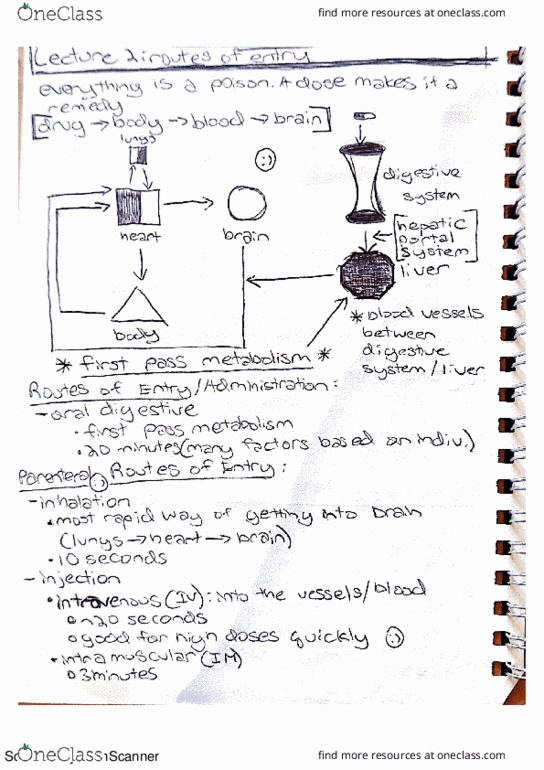 OneClass
find more resources at oneclass.com
Lecture 2: routes of entry
everything is a poison. A dose makes it a
remedy
[drug → body → blood → brain]
lungs
digestive
system
heart
brain
[hepatic
portal
system]
liver
body
* blood vessels
between
digestive
system/liver
* first pass metabolism *
Routes of Entry/Administration:
- oral digestive
• first pass metabolism
• 20 minutes (many factors based on indiv.)
Routes of Entry:
- inhalation
• most rapid way of getting into brain
(lungs → heart → brain)
• 10 seconds
- injection
• intravenous (IV): into the vessels/blood
o ~20 seconds
o good for high doses quickly :)
• intramuscular (IM)
o 3 minutes
OneClass
Scanner
find more resources at oneclass.com